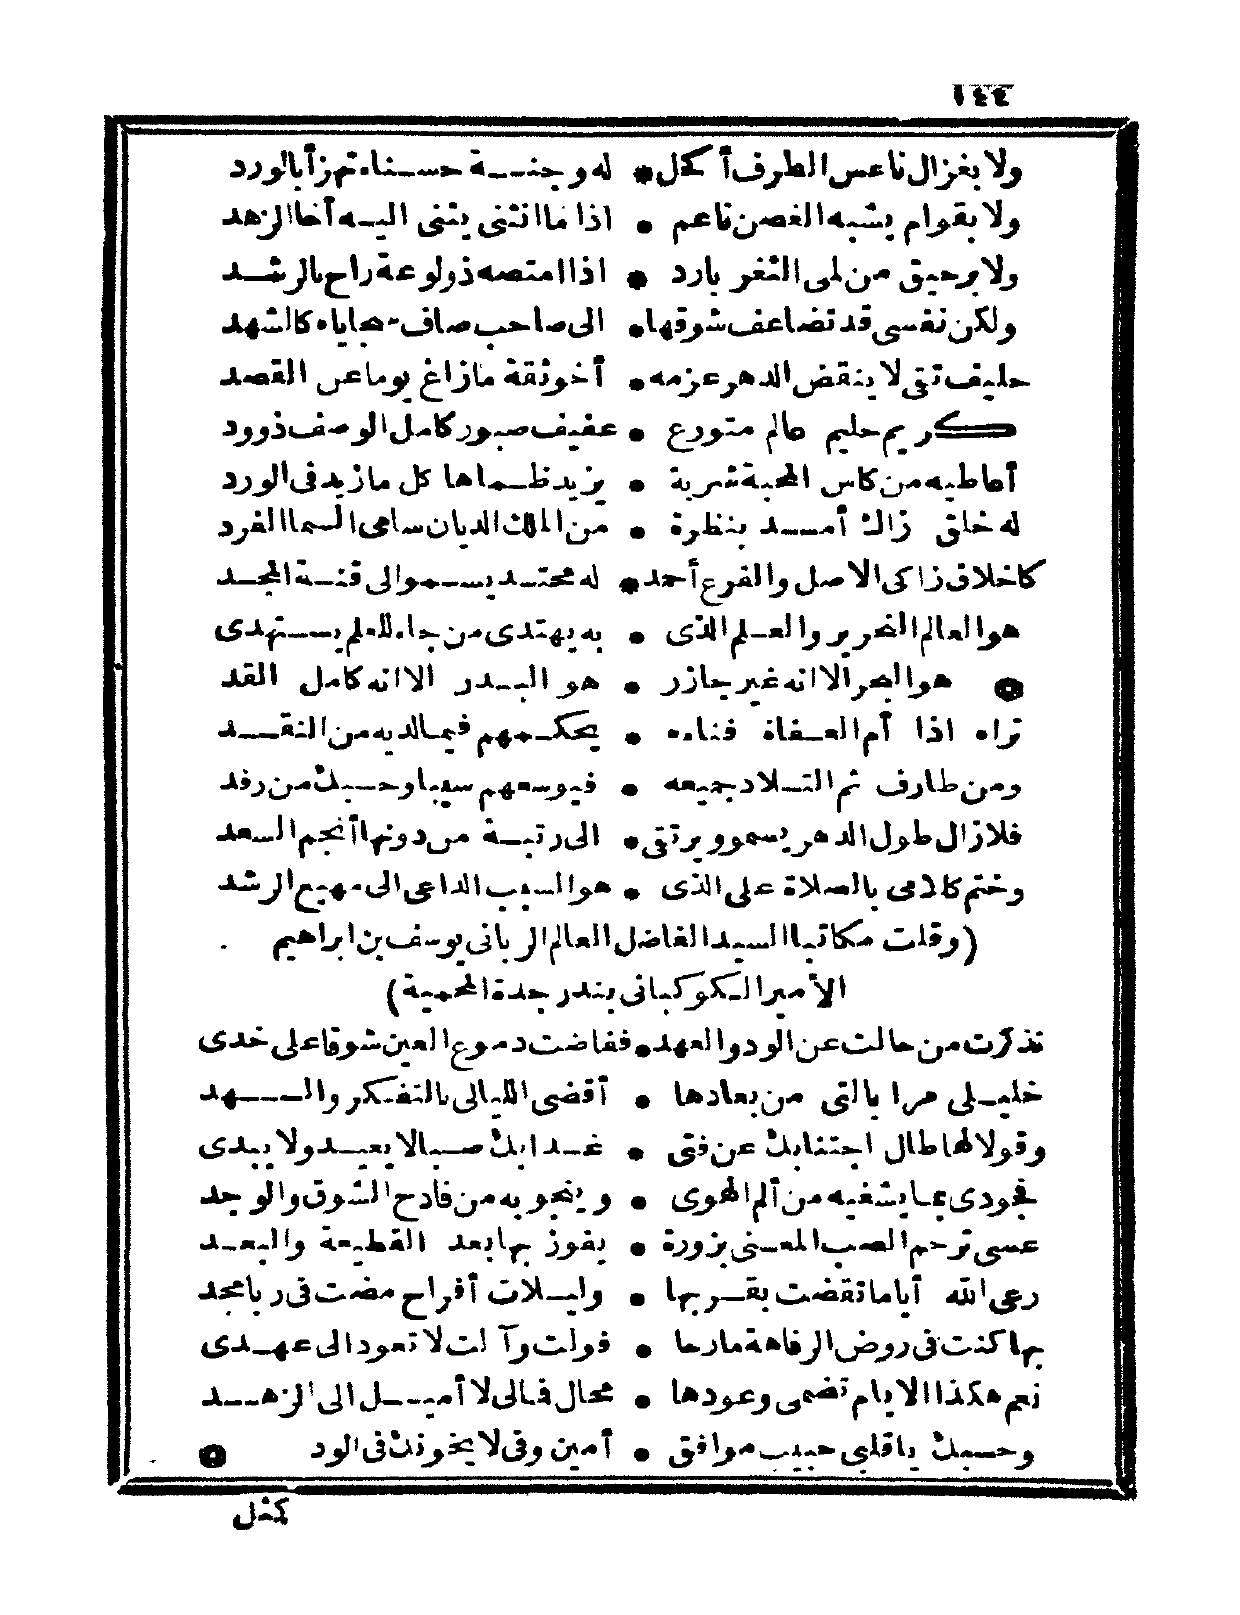 ١٤٤
ولا بغزال ناعس الطرف أكحل * له وجنة حسناء تهزأ بالورد
ولا بقوام يشبه الغصن ناعم * اذا ما انثنى يثنى اليه أخا الزهد
ولا برحيق من لمى الثغر بارد * اذا امتصه ذو لوعة راح بالرشد
ولكن نفسى قد تضاعف شوقها * الى صاحب صاف سجاياه كالشهد
حليف تقى لا ينقض الدهر عزمه * أخو ثقة ما زاغ يوما عن القصد
كريم حليم عالم متورع * عفيف صبور كامل الوصف ذو ود
أعاطيه من كاس المحبة شربة * يزيد ظماها كل ما زيد فى الورد
له خلق زاك أمد بنظرة * من الملك الديان سامى السما الفرد
كاخلاق زاكى الاصل والفرع أحمد * له محتد يسمو الى قنة المجد
هو العالم النحرير والعلم الذى * به يهتدى من جاء للعلم يستهدى
* هو البحر ألا انه غير جازر * هو البدر الا انه كامل القد
تراه اذا أم العفاة فناءه * يحكمهم فيما لديه من النقد
ومن طارف ثم التلاد جميعه * فيوسعهم سيبا وحسبك من رفد
فلا زال طول الدهر يسمو ويرتقى * الى رتبة من دونها أنجم السعد
وختم كلامى بالصلاة على الذى * هو السبب الداعى الى مهيع الرشد
(وقلت مكاتبا السيد الفاضل العالم الربانى يوسف بن ابراهيم
الأمير الكوكبانى ببندر جدة المحمية)
تذكرت من حالت عن الود والعهد * ففاضت دموع العين شوقا على خدى
خليلى مرا بالتى من بعادها * أقضى الليالى بالتفكر والسهد
وقولا لها طال اجتنابك عن فتى * غدا بك صبا لا يعيد ولا يبدى
فجودى بما يشفيه من ألم الهوى * وينجو به من فادح الشوق والوجد
عسى ترحم الصب المعنى بزورة * يفوز بها بعد القطيعة والبعد
رعى الله أياما تقضت بقربها * وليلات أفراح مضت فى ربا نجد
بها كنت فى روض الرفاهة مارحا * فولت وآلت لا تعود الى عهدى
نعم هكذا الايام تضمى وعودها * محال فمالى لا أميل الى الزهد
وحسبك يا قلبى حبيب موافق * أمين وفى لا يخونك فى الود *
كمثل